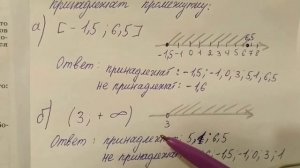 принадлежат промежутку:
а) [-1,5 ; 6,5]
-1,5 -1 0 1 2 3 4 5 6 7 8
6,5
Ответ: принадлежат: -1,5; -1, 0, 3, 5,1, 6,5
не принадлежат: -1,6
б) (3; +∞)
3
Ответ: принадлежат: 5,1; 6,5
не принадлежат: -1,5, -1, 0, 3;